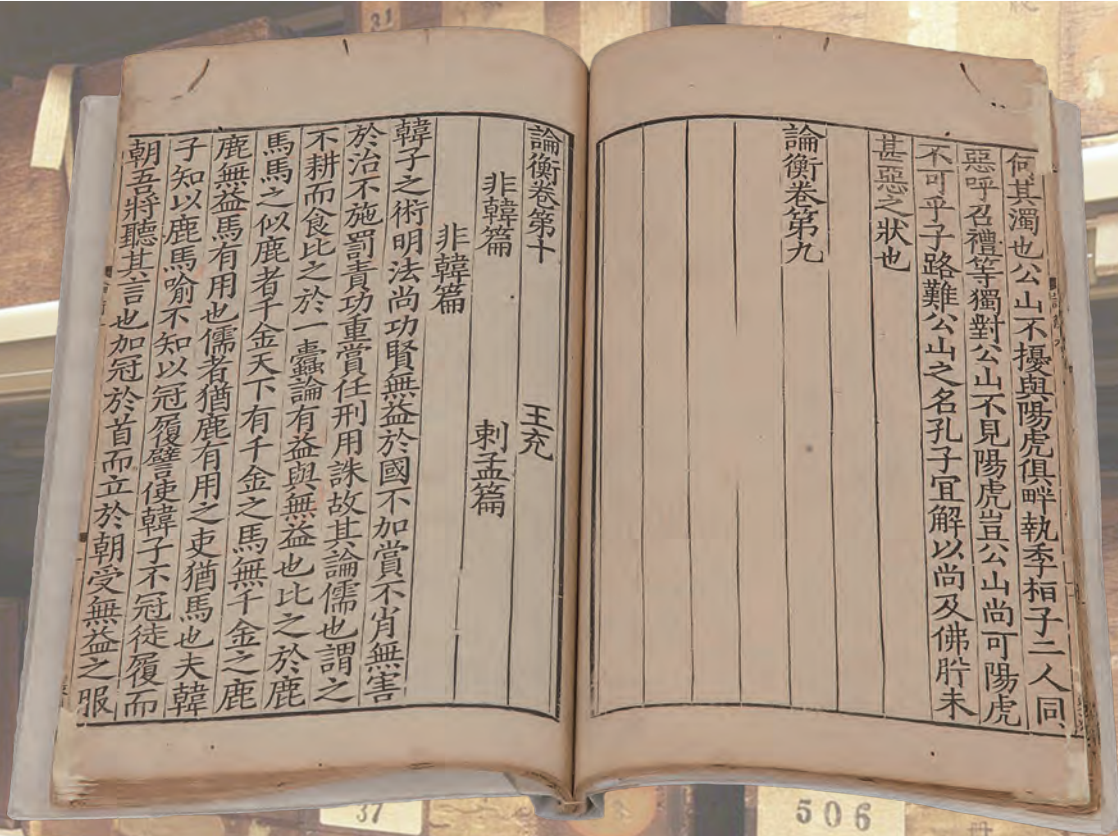 何其濁也公山不擾與陽虎俱畔執季桓子二人同
惡呼召禮等獨對公山不見陽虎豈公山尚可陽虎
不可乎子路難公山之名孔子宜解以尚及佛肸未
甚惡之狀也
論衡卷第九
論衡卷第十 王充
非韓篇 刺孟篇
非韓篇
韓子之術明法尚功賢無益於國不加賞不肖無害
於治不施罰責功重賞任刑用誅故其論儒也謂之
不耕而食比之於一蠹論有益與無益也比之於鹿
馬馬之似鹿者千金天下有千金之馬無千金之鹿
鹿無益馬有用也儒者猶鹿有用之吏猶馬也夫韓
子知以鹿馬喻不知以冠履譬使韓子不冠徒履而
朝吾將聽其言也加冠於首而立於朝受無益之服
31
37
506